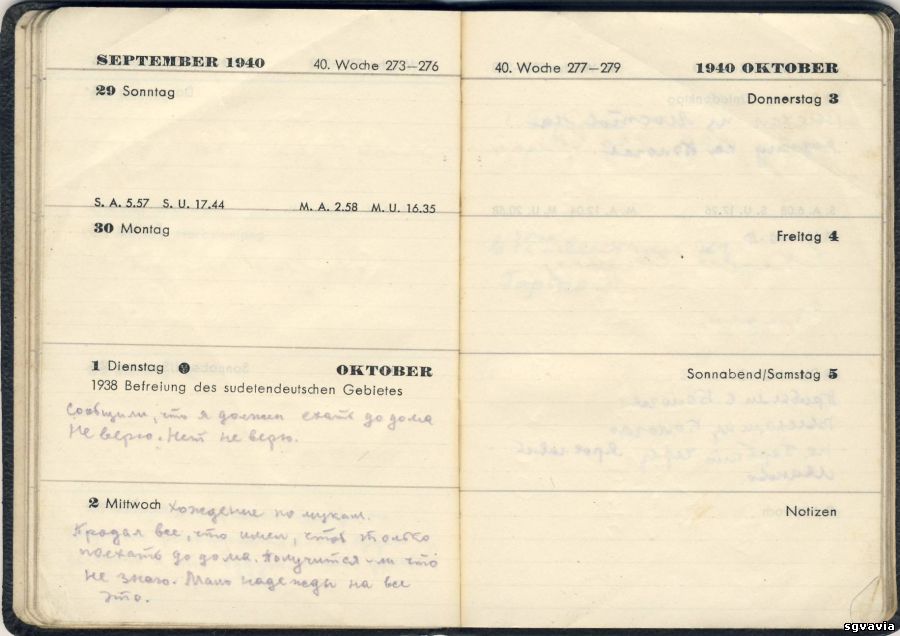 SEPTEMBER 1940 40. Woche 273–276
29 Sonntag
S. A. 5.57 S. U. 17.44 M. A. 2.58 M. U. 16.35
30 Montag
1 Dienstag OKTOBER
1938 Befreiung des sudetendeutschen Gebietes
Сообщили, что я должен ехать до дома
Не верю. Нет не верю.
2 Mittwoch Хождение по мукам.
Продал все, что имел, чтоб только
поехать до дома. Получится-ли что
не знаю. Мало надежды на все
это.
40. Woche 277–279 1940 OKTOBER
Donnerstag 3
Freitag 4
Sonnabend/Samstag 5
Notizen
sgvavia